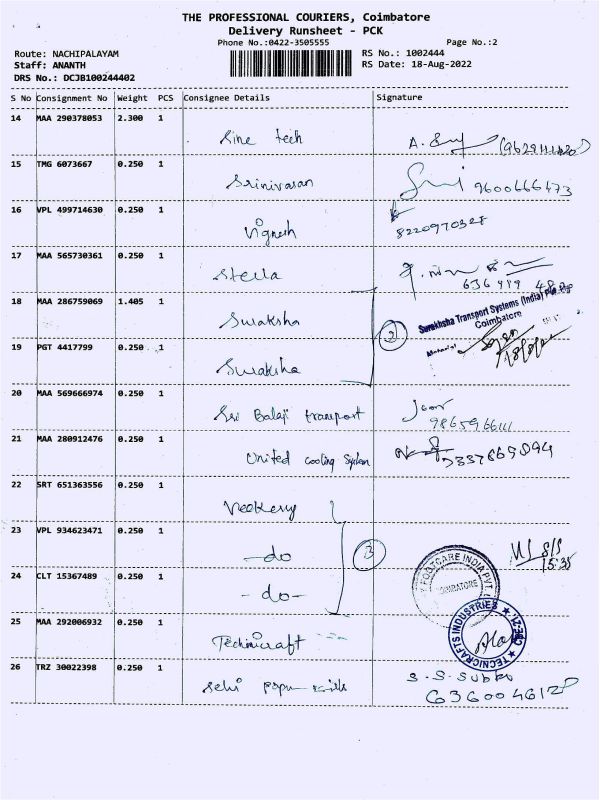 THE PROFESSIONAL COURIERS, Coimbatore
Delivery Runsheet - PCK
Phone No.:0422-3505555 Page No.:2
Route: NACHIPALAYAM RS No.: 1002444
Staff: ANANTH RS Date: 18-Aug-2022
DRS No.: DCJB100244402
S No Consignment No Weight PCS Consignee Details Signature
14 MAA 290378053 2.300 1
Sine tech A.
15 TMG 6073667 0.250 1
Srinivasan 9600666473
16 VPL 499714630 0.250 1
Vignesh 8220970328
17 MAA 565730361 0.250 1
Stella
18 MAA 286759069 1.405 1
Suraksha
Surakhsha Transport Systems (India)
Coimbatore
2
19 PGT 4417799 0.250 1
Suraksha
20 MAA 569666974 0.250 1
Sri Balaji transport
21 MAA 280912476 0.250 1
United cooling System 7337869894
22 SRT 651363556 0.250 1
23 VPL 934623471 0.250 1
-do- 3 15:35
24 CLT 15367489 0.250 1
-do-
FOOTCARE INDIA PVT.
COIMBATORE
25 MAA 292006932 0.250 1
Technicraft
TECNICRAFTS INDUSTRIES ★ CBE-21. ★
26 TRZ 30022398 0.250 1
Selvi S.S.Subbu
6360046128